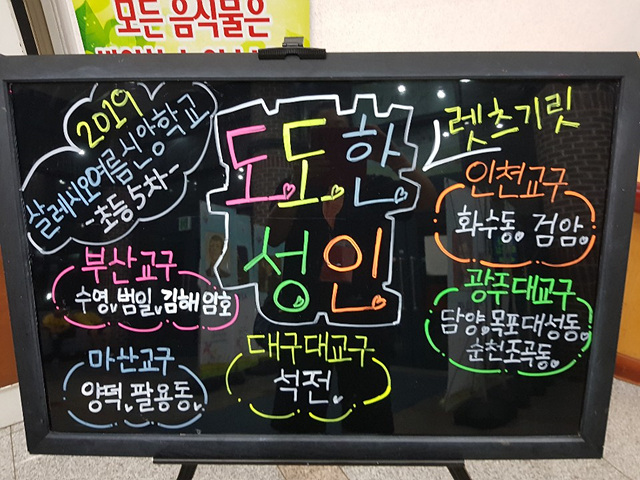 모든 음식물은
2019
살레시오여름신앙학교
-초등5차-
도도한
성인
렛츠기릿
인천교구
화수동, 검암
부산교구
수영, 범일, 김해암호
광주대교구
담양, 목포대성동,
순천조곡동
마산교구
양덕, 팔용동
대구대교구
석전